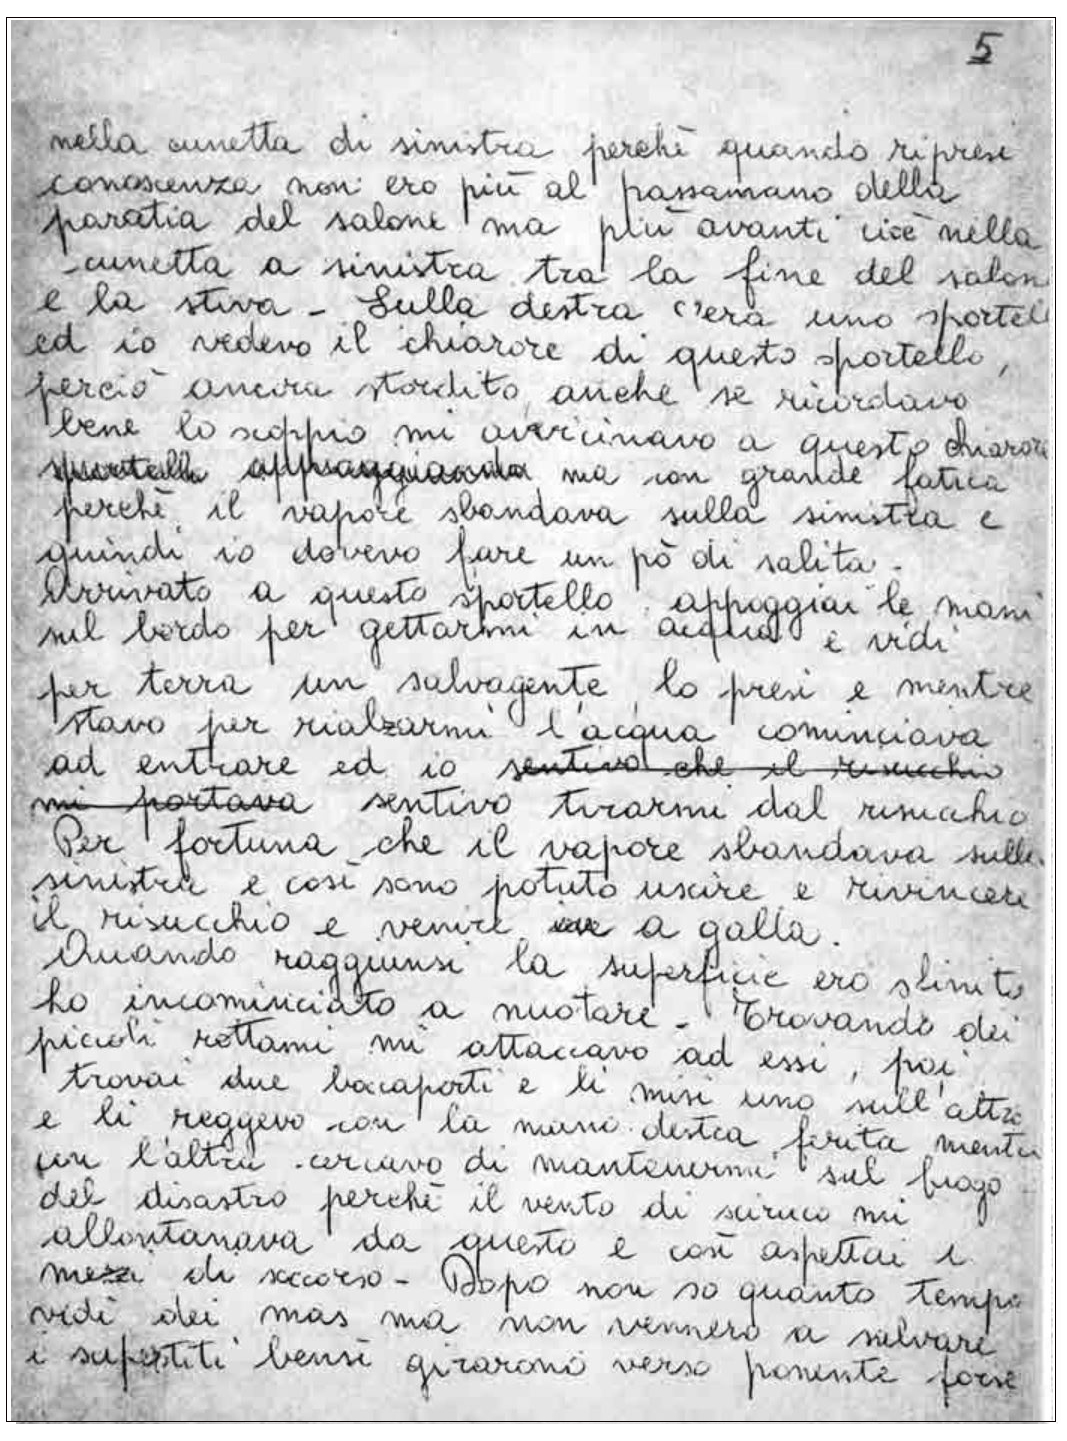 5
nella cunetta di sinistra perchè quando ripresi
conoscenza non ero più al passamano della
paratia del salone ma più avanti cioè nella
cunetta a sinistra tra la fine del salon
e la stiva - Sulla destra c'era uno sportel
ed io vedevo il chiarore di questo sportello,
perciò ancora stordito anche se ricordavo
bene lo scoppio mi avvicinavo a questo chiarore
sportello appoggiando ma con grande fatica
perchè il vapore sbandava sulla sinistra e
quindi io dovevo fare un pò di salita.
Arrivato a questo sportello appoggiai le mani
sul bordo per gettarmi in acqua e vidi
per terra un salvagente, lo presi e mentre
stavo per rialzarmi l'acqua cominciava
ad entrare ed io sentivo che il risucchio
mi portava sentivo tirarmi dal risucchio
Per fortuna che il vapore sbandava sulla
sinistra e così sono potuto uscire e rivincere
il risucchio e venire a galla.
Quando raggiunsi la superficie ero sfinito
ho incominciato a nuotare - Trovando dei
piccoli rottami mi attaccavo ad essi, poi
trovai due boccaporti e li misi uno sull'altro
e li reggevo con la mano destra ferita mentre
con l'altra cercavo di mantenermi sul luogo
del disastro perchè il vento di scirocco mi
allontanava da questo e così aspettai i
mezzi di soccorso - Dopo non so quanto tempo
vidi dei mas ma non vennero a salvare
i superstiti bensì girarono verso ponente forse